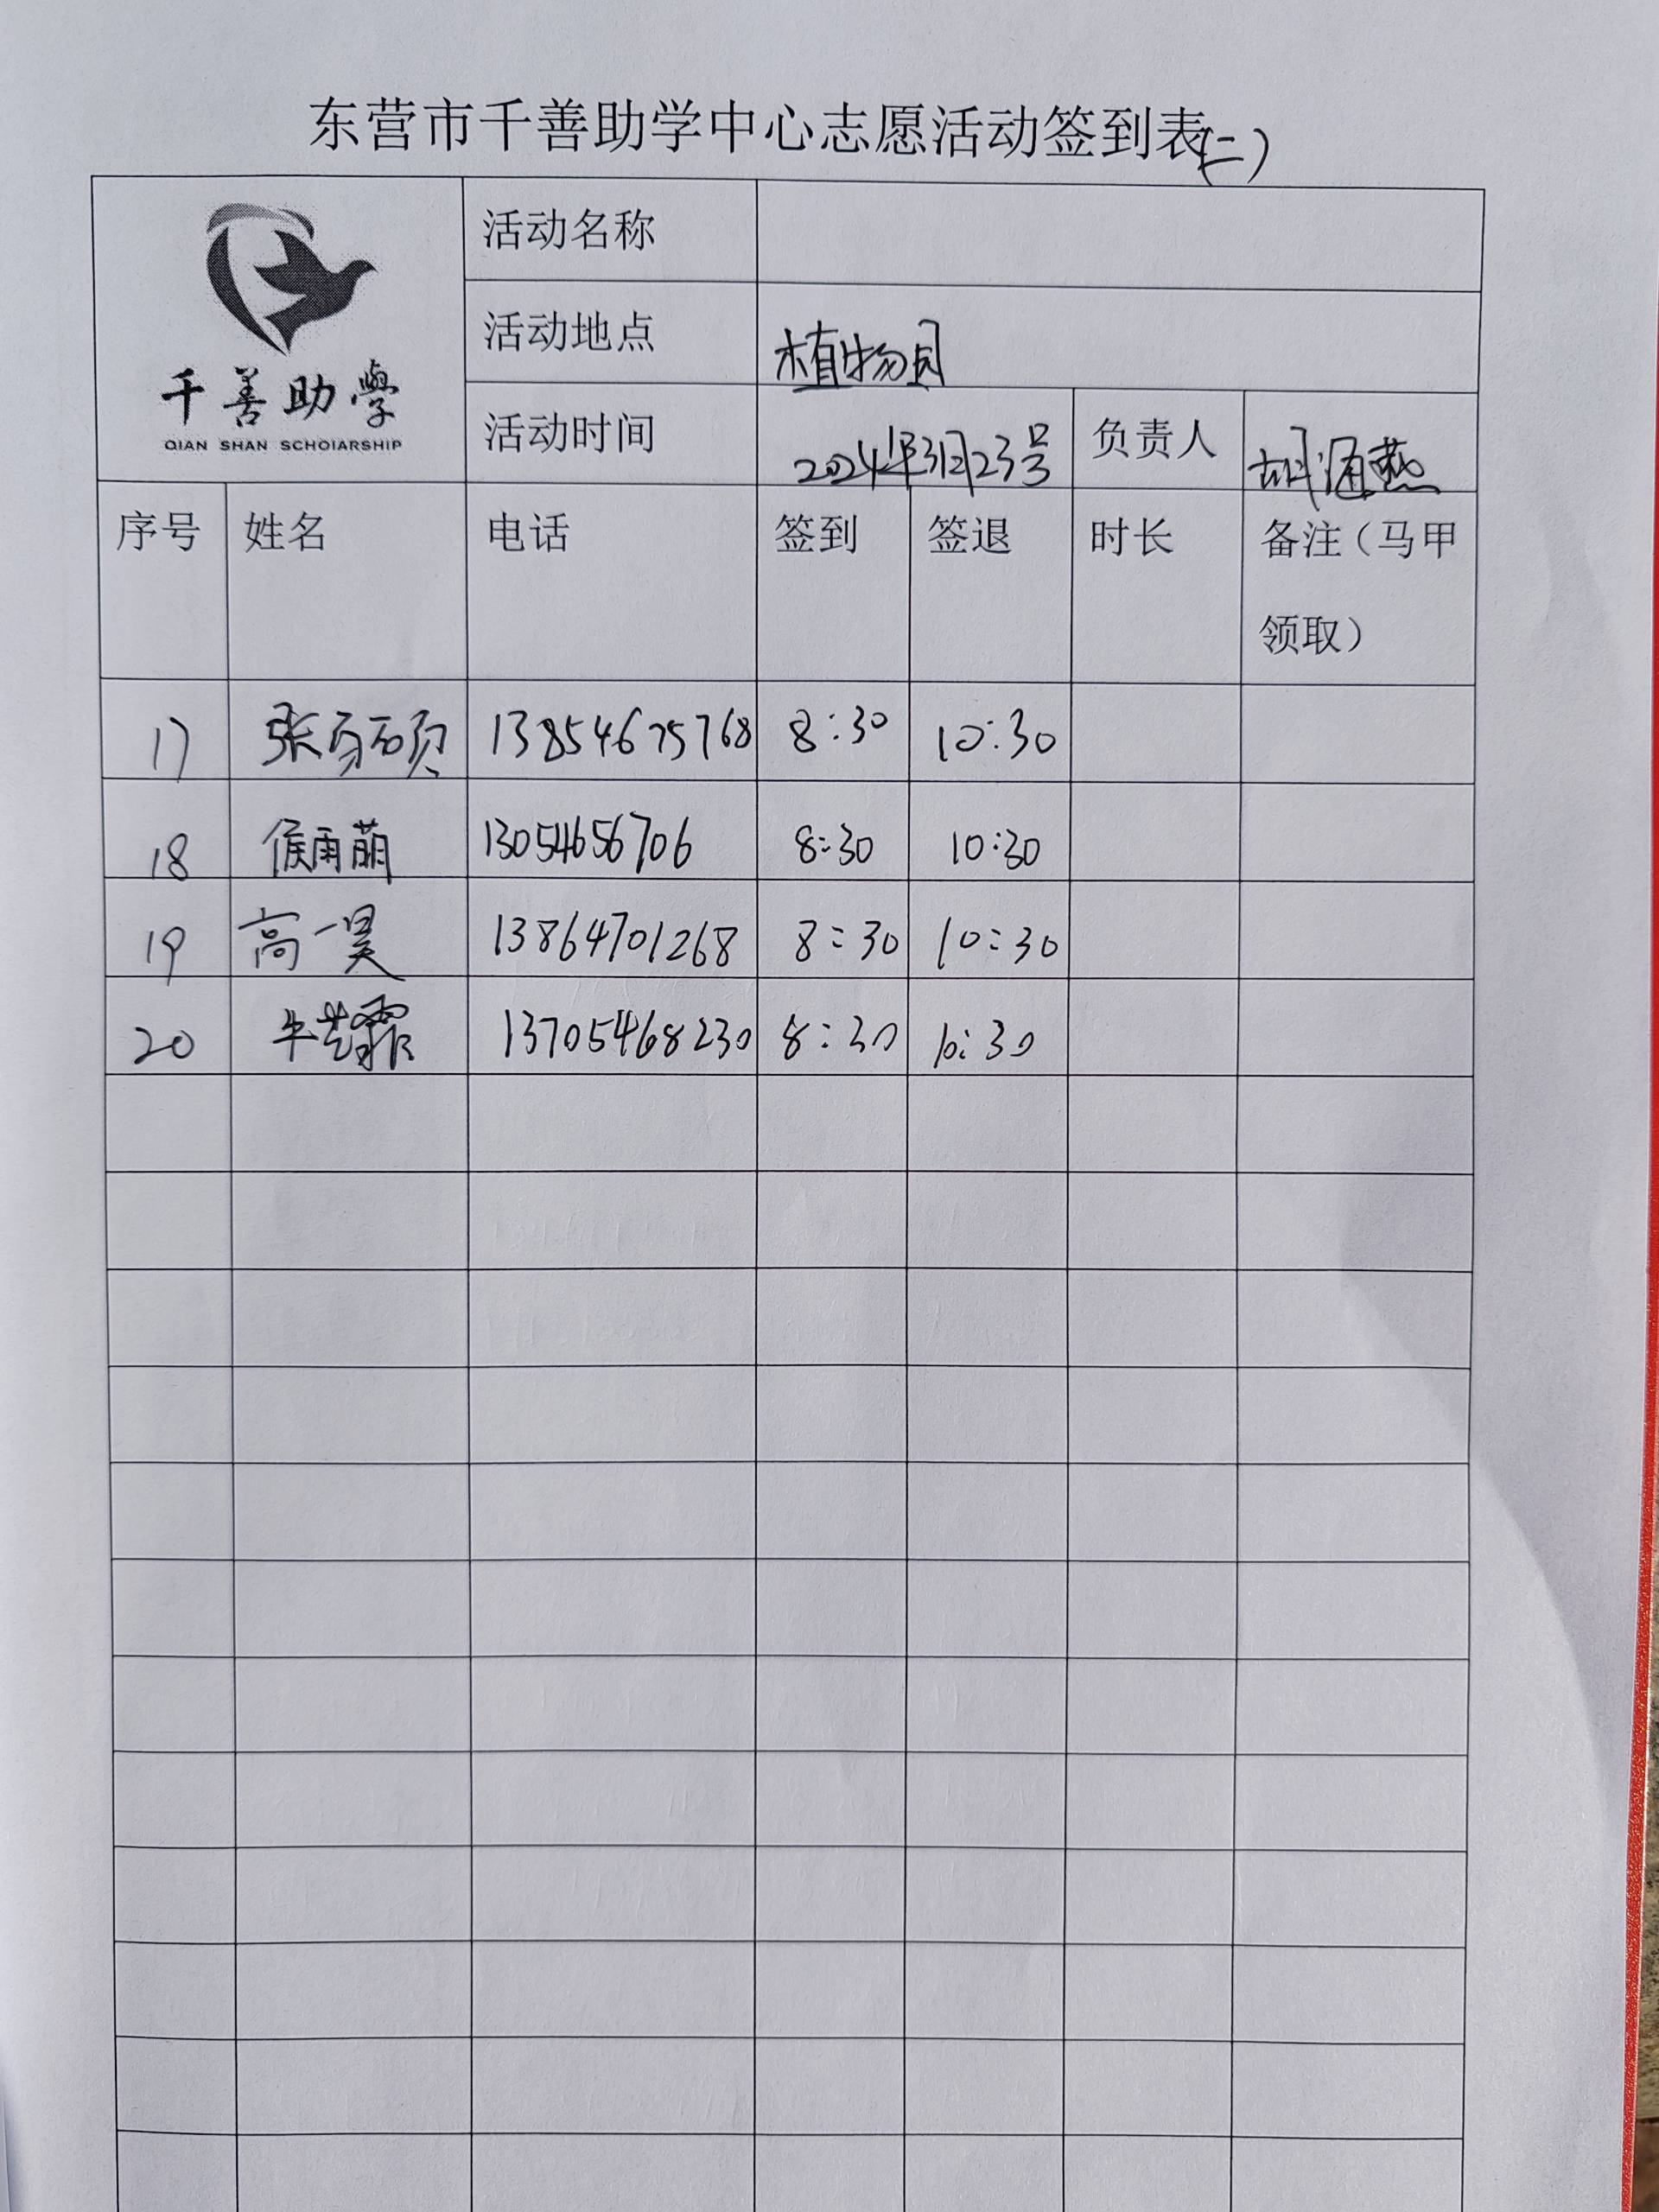 东营市千善助学中心志愿活动签到表(二)
千善助學
QIAN SHAN SCHOlARSHIP
活动名称
活动地点 植物园
活动时间 2024年3月23号 负责人 胡海燕
序号 姓名 电话 签到 签退 时长 备注（马甲
领取）
17 张 硕 13854675768 8:30 10:30
18 侯雨萌 13054656706 8:30 10:30
19 高一昊 13864701268 8:30 10:30
20 牛 霏 13705468230 8:30 10:30